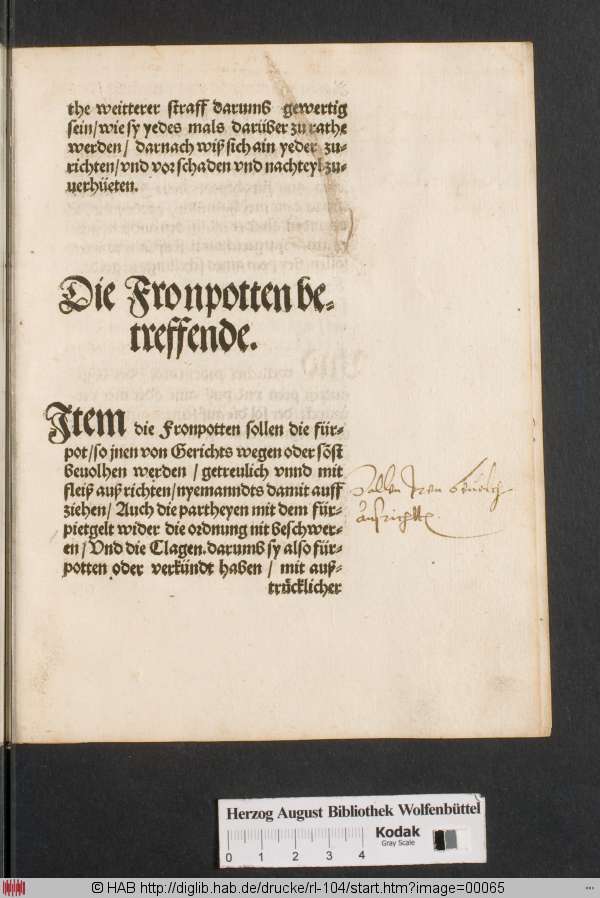 the weitterer straff darumb gewertig
sein/wie sy yedes mals darüber zu rathe
werden/ darnach wiß sich ain yeder zu-
richten/vnd vor schaden vnd nachteyl zu-
uerhüeten.
Die Fronpotten be-
treffende.
Item die Fronpotten sollen die für-
pot/so jnen von Gerichts wegen oder söst
beuolhen werden / getreulich vnnd mit
fleiß auß richten/nyemanndts damit auff
ziehen/ Auch die partheyen mit dem für-
pietgelt wider die ordnung nit beschwer-
en/ Vnd die Clagen. darumb sy also für-
potten oder verkündt haben / mit auß-
trücklicher
Sollen
außrichtt
Herzog August Bibliothek Wolfenbüttel
Kodak
Gray Scale
0 1 2 3 4
© HAB http://diglib.hab.de/drucke/rl-104/start.htm?image=00065